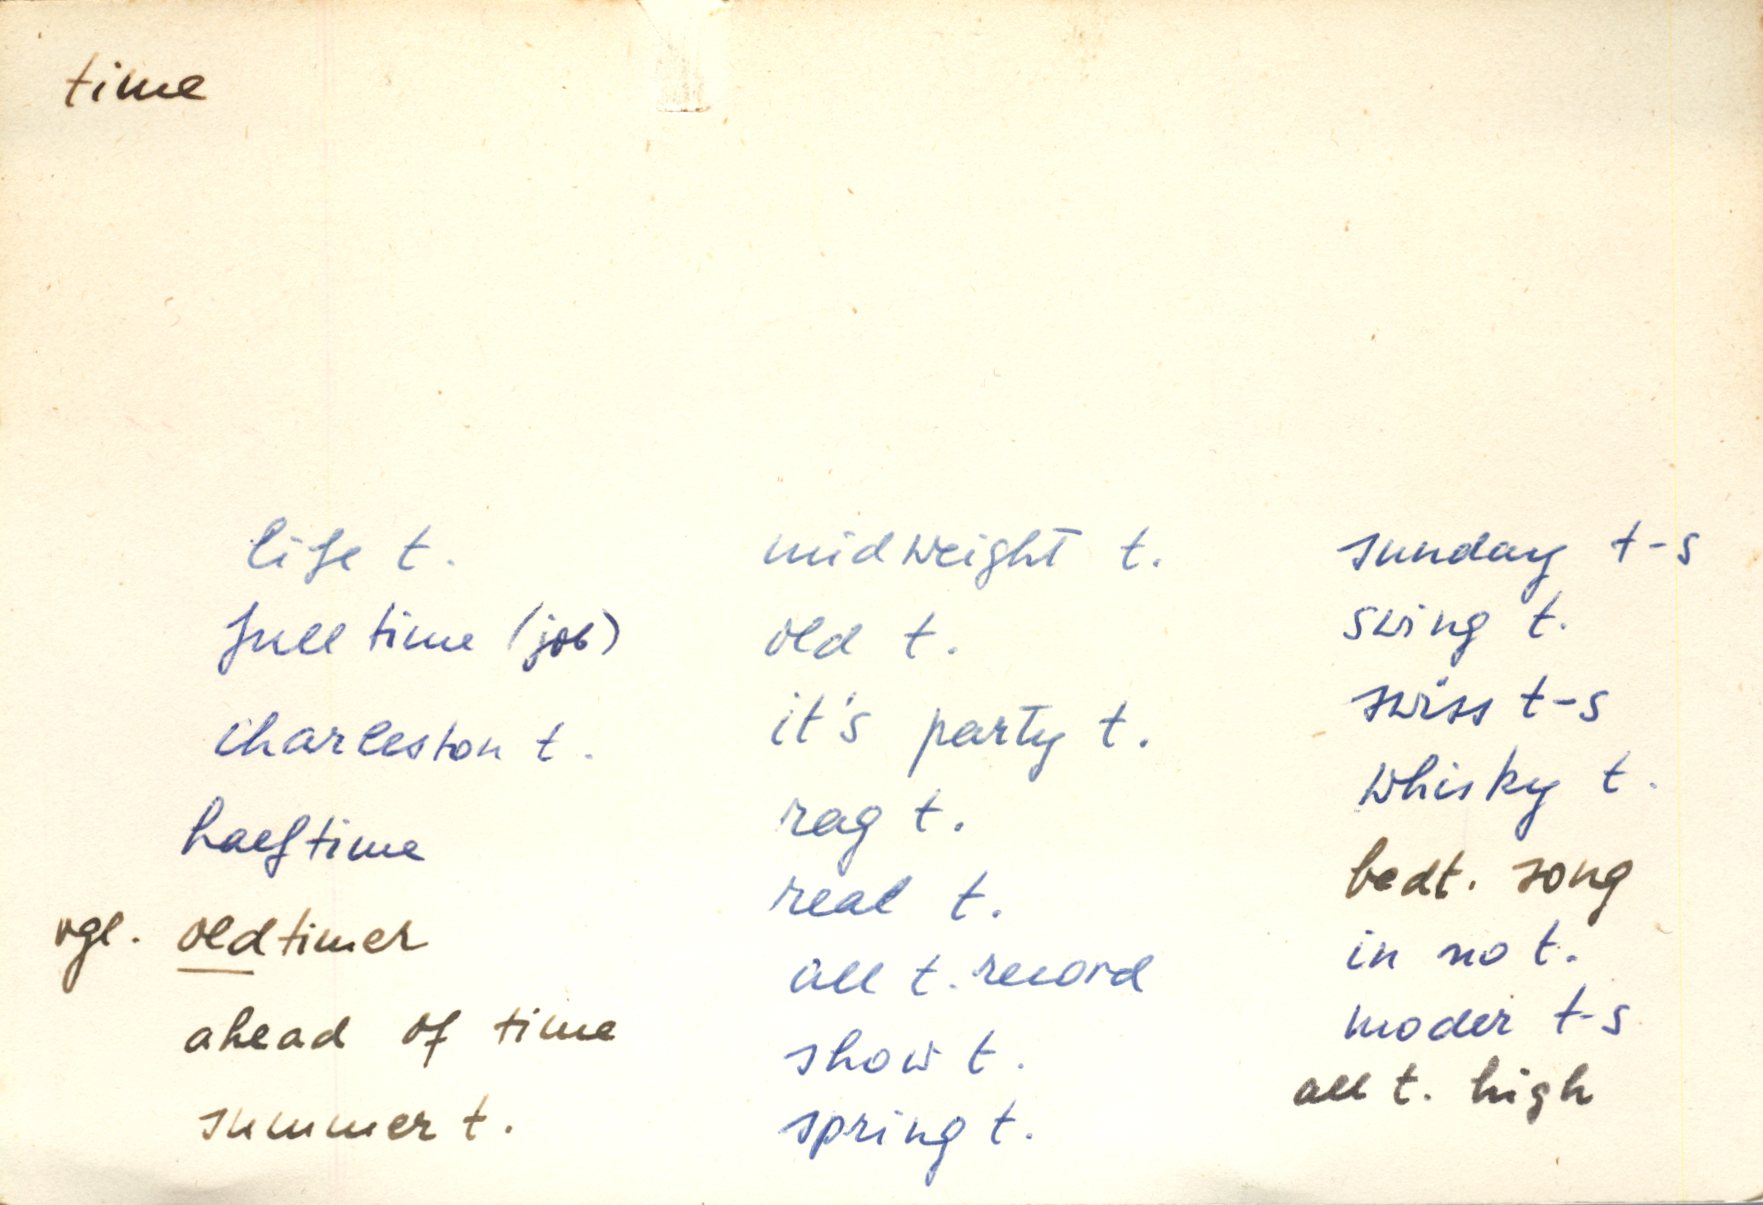 time
life t.
full time (job)
charleston t.
halftime
vgl. oldtimer
ahead of time
summer t.
midweight t.
old t.
it's party t.
rag t.
real t.
all t. record
show t.
spring t.
sunday t-s
swing t.
swiss t-s
whisky t.
bedt. song
in no t.
moder t-s
all t. high